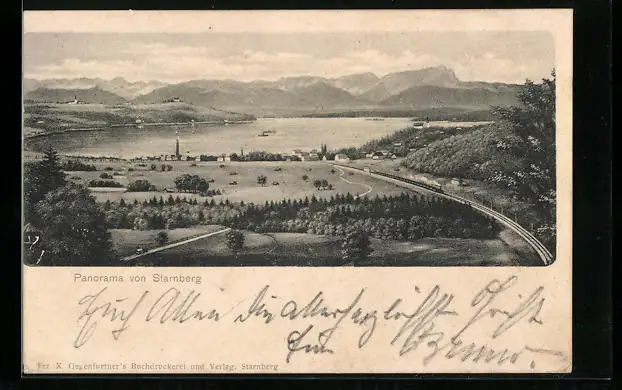 Panorama von Starnberg
Euch Allen die Allerherzlichst
Frz X. Gegenfurtner's Buchdruckerei und Verlag, Starnberg